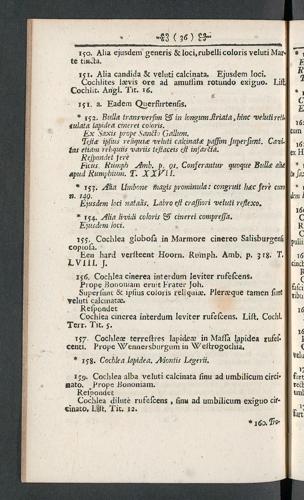 ( 36 )
150. Alia ejusdem generis & loci, rubelli coloris veluti Mar-
te tincta.
151. Alia candida & veluti calcinata. Ejusdem loci.
Cochlites lævis ore ad amussim rotundo exiguo. List.
Cochlit. Angl. Tit. 16.
151. a. Eadem Quersurtensis.
* 152. Bulla transversim & in longum striata, hinc veluti reti-
culata lapidea cinerei coloris.
Ex Saxis prope Sanct. Gallum.
Testæ ipsius reliquiæ veluti calcinatæ passim supersunt. Cavi-
tas etiam reliquiis variis testaceis est infarcta.
Respondet ferè
Ficus. Rumph Amb. p. 91. Conferantur quoque Bullæ aliæ
apud Rumphium. T. XXVII.
* 153. Alia Umbone magis prominula: congruit hæc ferè cum
n. 149.
Ejusdem loci natalis, Labro est crassiori veluti reflexo.
* 154. Alia lividi coloris & cinerei compressa.
Ejusdem loci.
155. Cochlea globosa in Marmore cinereo Salisburgensi
copiosa.
Een hard versteent Hoorn. Rumph. Amb. p. 318. T.
LVIII. J.
156. Cochlea cinerea interdum leviter rufescens.
Prope Bononiam eruit Frater Joh.
Supersunt & ipsius coloris reliquiæ. Pleræque tamen sunt
veluti calcinatæ.
Respondet
Cochlea cinerea interdum leviter rufescens. List. Cochl.
Terr. Tit. 5.
157. Cochleæ terrestres lapideæ in Massa lapidea rufes-
centi. Prope Wennersburgum in Westrogothia.
* 158. Cochlea lapidea, Montis Legerii.
159. Cochlea alba veluti calcinata sinu ad umbilicum circi-
nato. Prope Bononiam.
Respondet
Cochlea dilutè rufescens, sinu ad umbilicum exiguo cir-
cinato, List. Tit. 12.
* 160. Tro-